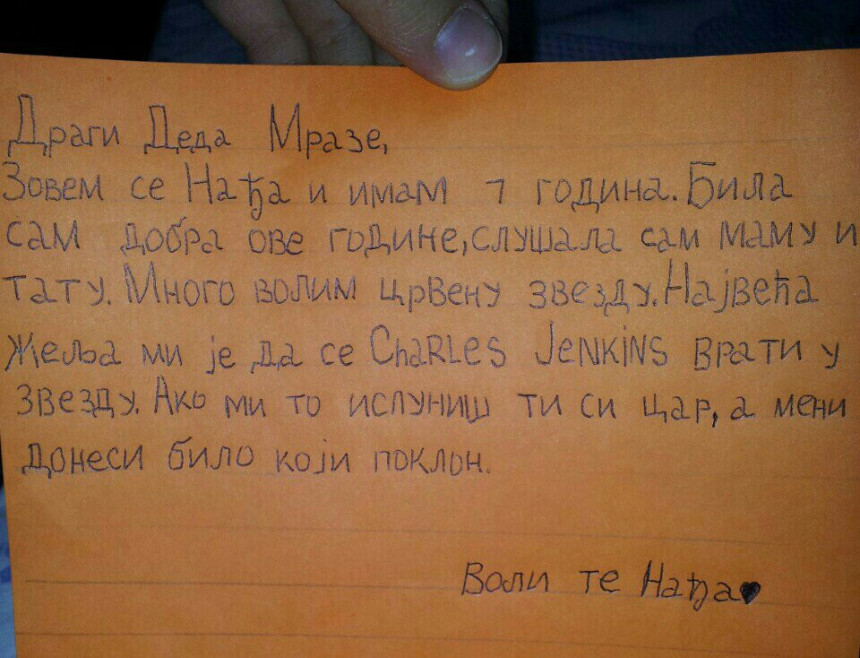 Драги Деда Мразе,
Зовем се Нађа и имам 7 година. Била
сам добра ове године, слушала сам маму и
тату. Много волим црвену звезду. Највећа
жеља ми је да се ChaRLeS JeNKiNS врати у
звезду. Ако ми то испуниш ти си цар, а мени
донеси било који поклон.
Воли те Нађа♥